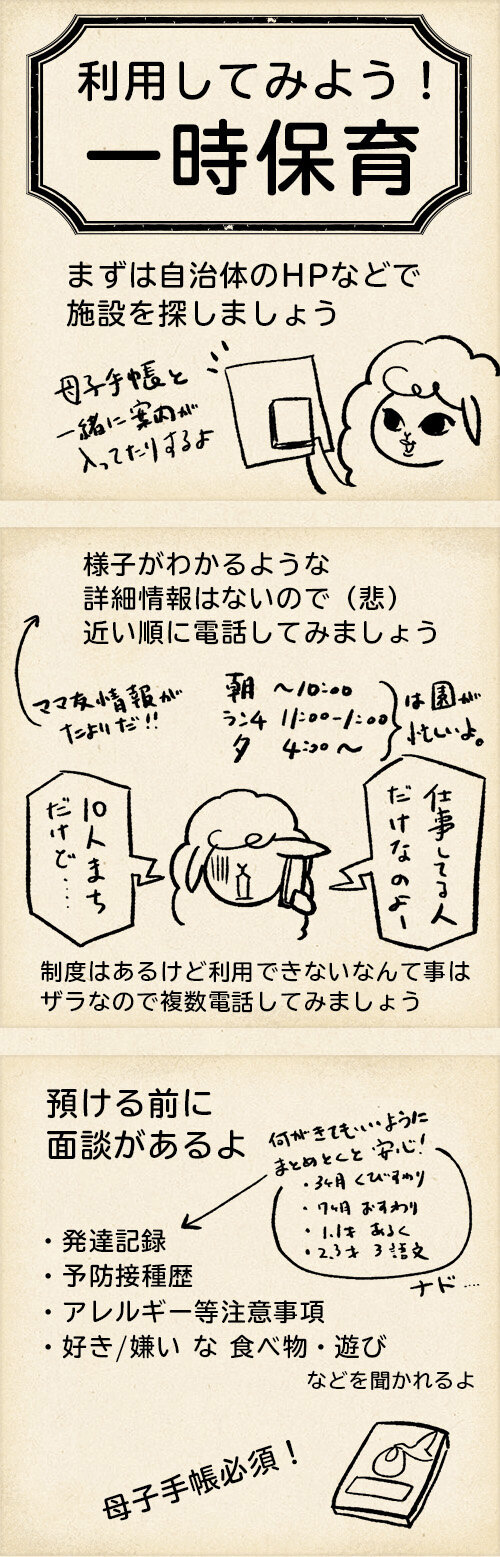 利用してみよう！
一時保育
まずは自治体のHPなどで
施設を探しましょう
母子手帳と
一緒に案内が
入ってたりするよ
様子がわかるような
詳細情報はないので（悲）
近い順に電話してみましょう
ママ友情報が
たよりだ!!
朝 〜10:00
ランチ 11:00-1:00
夕 4:00〜
は園が
忙しいよ。
仕事してる人
だけなのよー
10人まち
だけど……
制度はあるけど利用できないなんて事は
ザラなので複数電話してみましょう
預ける前に
面談があるよ
何がきてもいいように
まとめとくと安心!
・3ヶ月 くびすわり
・7ヶ月 おすわり
・1.1才 あるく
・2.3才 3語文
ナド…
・発達記録
・予防接種歴
・アレルギー等注意事項
・好き/嫌い な 食べ物・遊び
などを聞かれるよ
母子手帳必須！